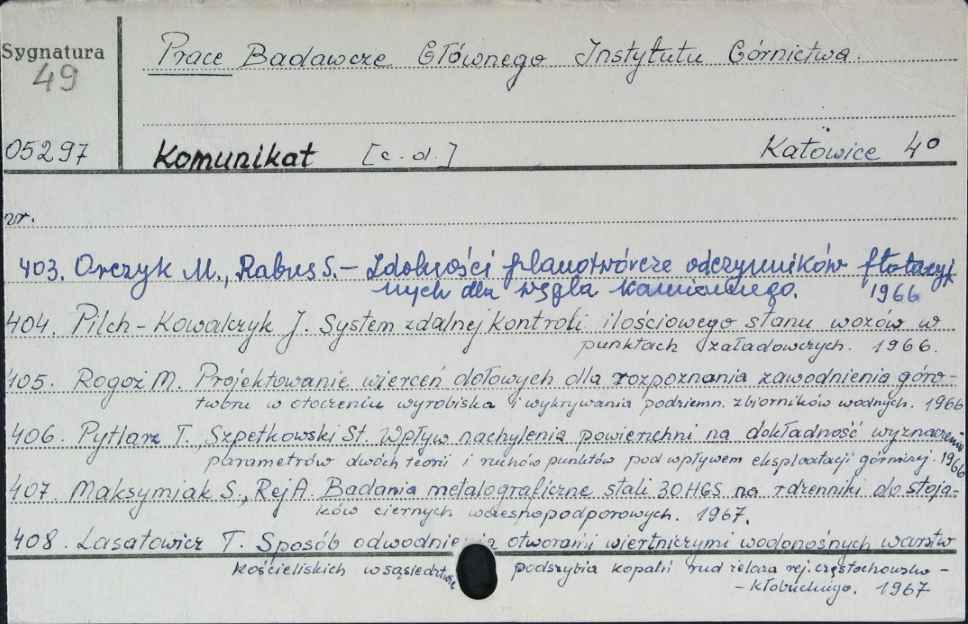 Sygnatura
49
Prace Badawcze Głównego Instytutu Górnictwa.
05297
Komunikat [c.d.] Katowice 4°
nr.
403. Orczyk M., Rabus S. – Zdolności pianotwórcze odczynników flotacyj
nych dla węgla kamiennego. 1966
404. Pilch-Kowalczyk J. System zdalnej kontroli ilościowego stanu wozów w
punktach załadowczych. 1966.
405. Rogoż M. Projektowanie wierceń dołowych dla rozpoznania zawodnienia góro-
tworu w otoczeniu wyrobiska i wykrywania podziemn. zbiorników wodnych. 1966
406. Pytlarz T., Szpetkowski St. Wpływ nachylenia powierzchni na dokładność wyznaczenia
parametrów dwóch teorii i ruchów punktów pod wpływem eksploatacji górniczej. 1966
407 Maksymiak S., Rej A. Badania metalograficzne stali 30HGS na rdzenniki do stoja-
ków ciernych wczesnopodporowych. 1967.
408. Lasatowicz T. Sposób odwodnienia otworami wiertniczymi wodonośnych warstw
kościeliskich w sąsiedztwie podszybia kopalń rud żelaza rej. częstochowsko -
- kłobuckiego. 1967